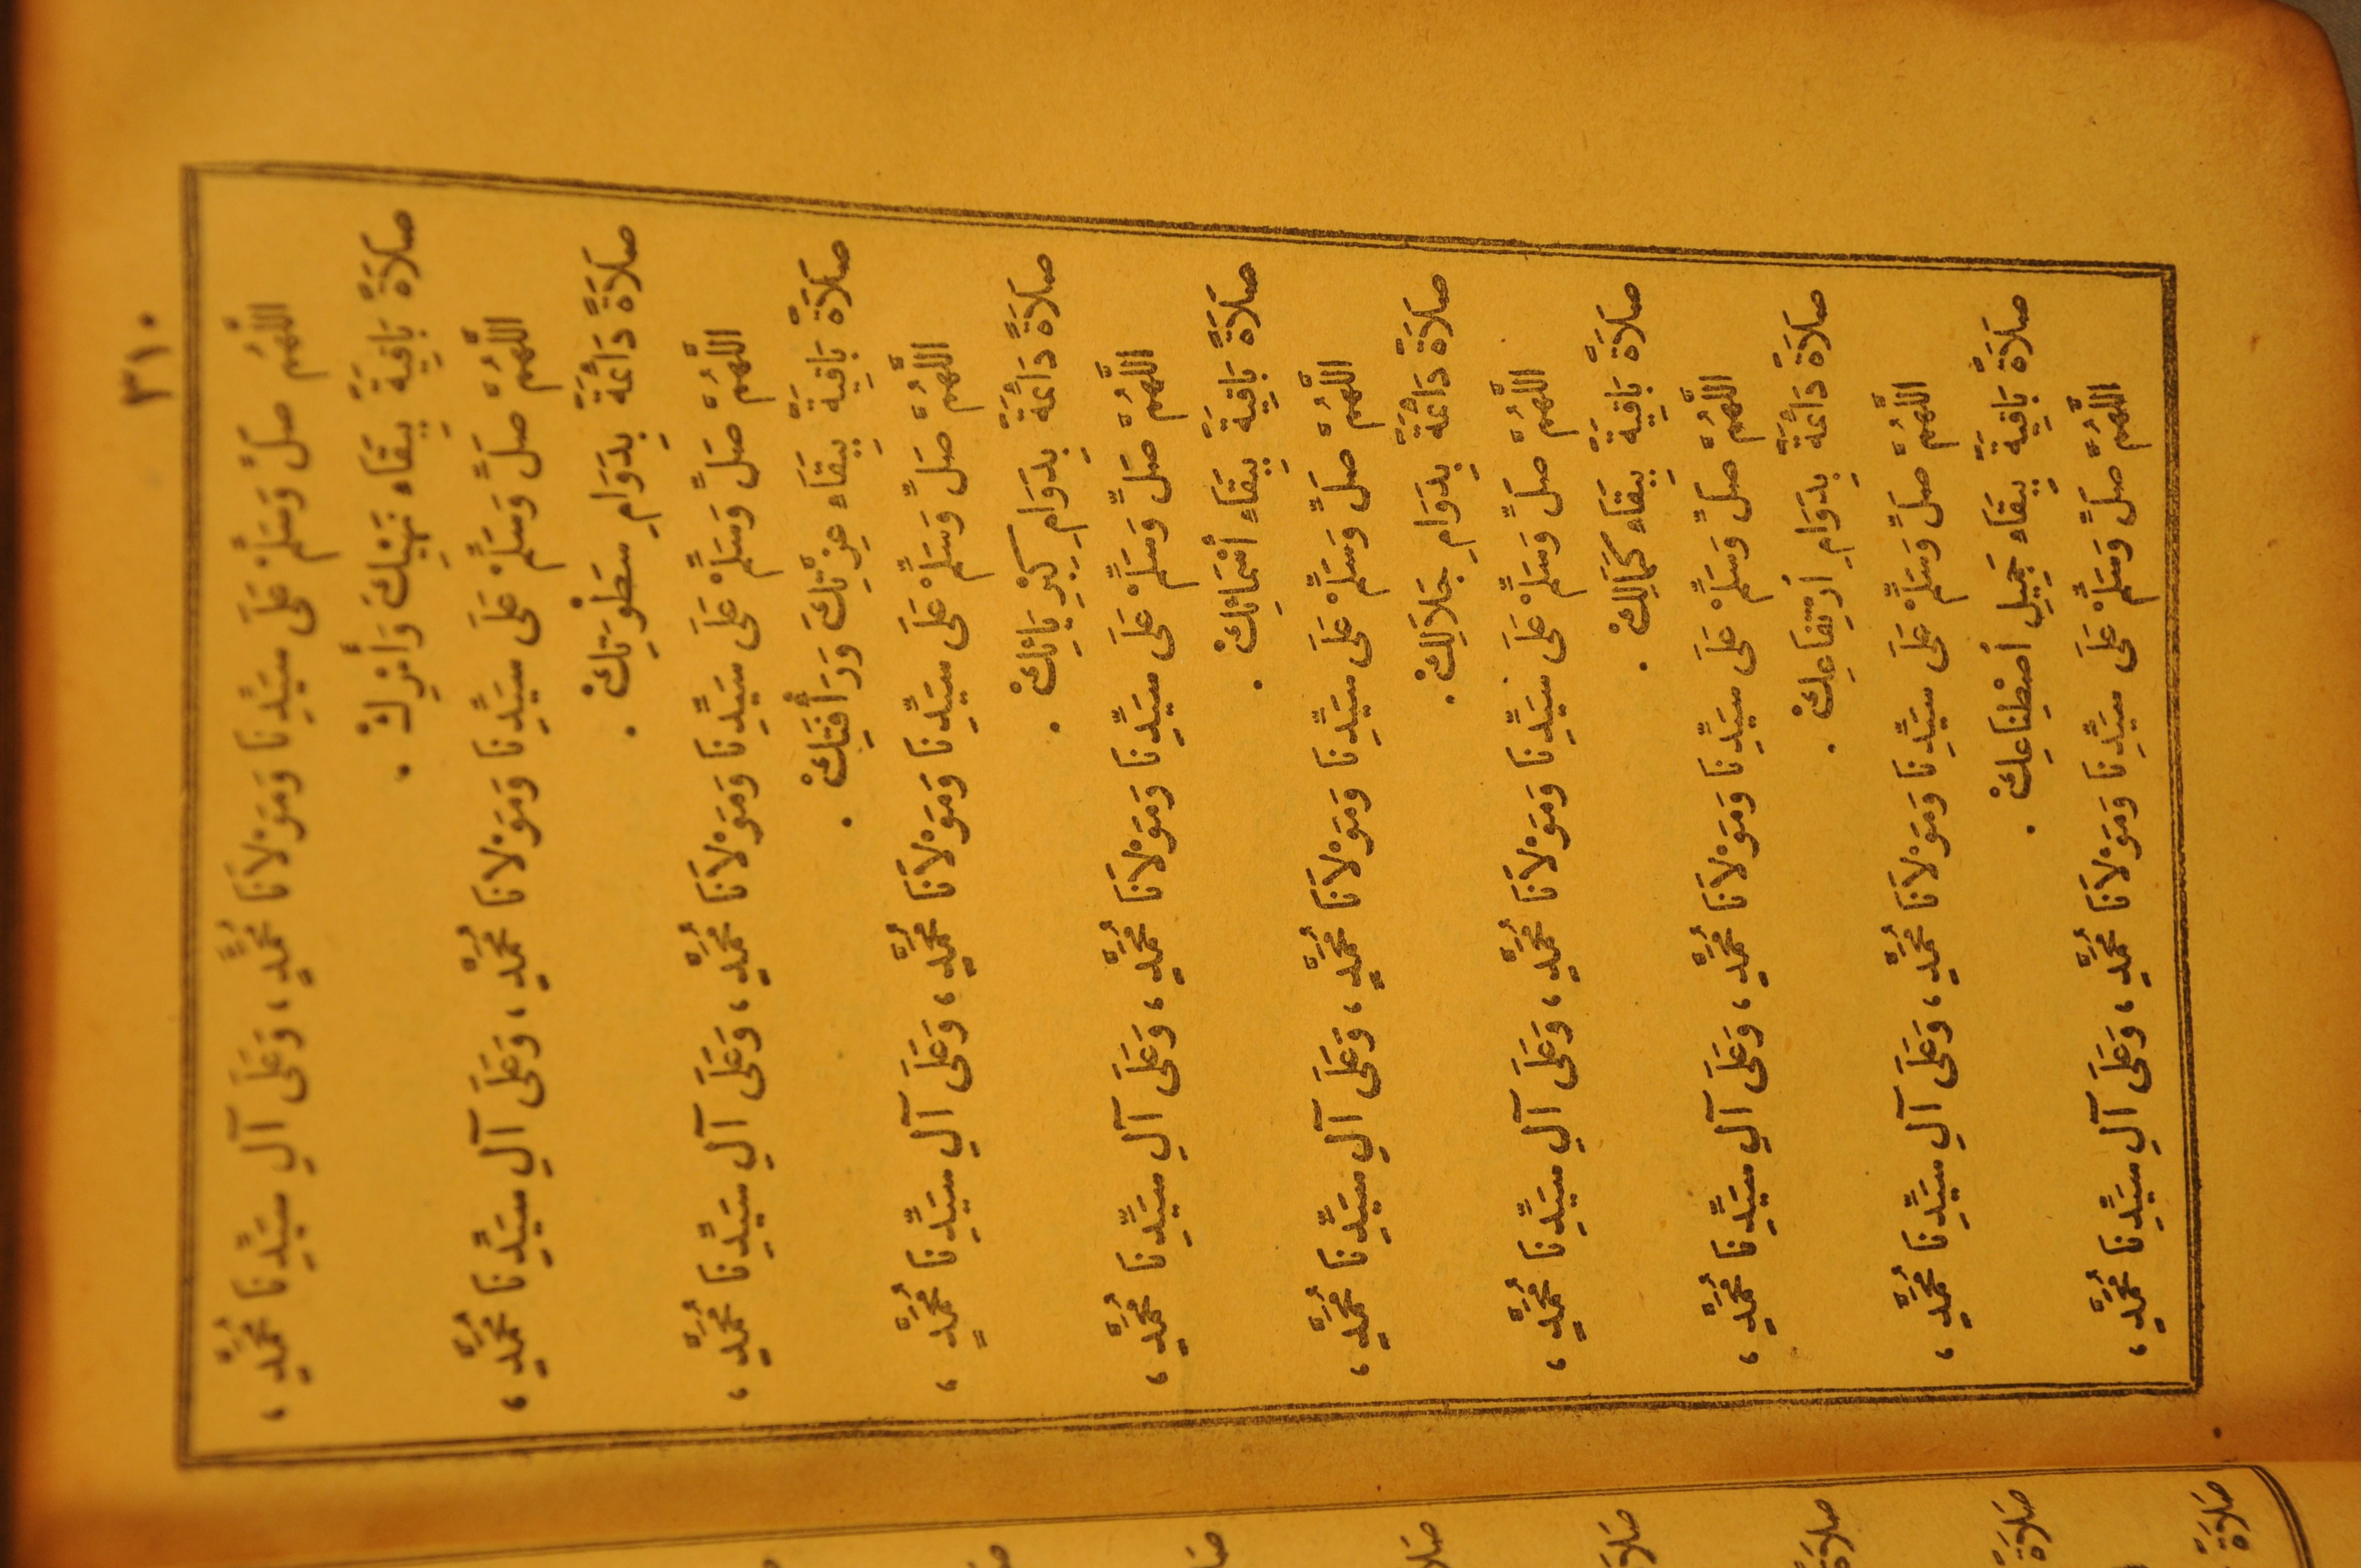 ٣١٠
اللَّهُمَّ صَلِّ وَسَلِّمْ عَلَى سَيِّدِنَا وَمَوْلَانَا مُحَمَّدٍ، وَعَلَى آلِ سَيِّدِنَا مُحَمَّدٍ،
صَلَاةً بَاقِيَةً بِبَقَاءِ نَهْيِكَ وَأَمْرِكْ.
اللَّهُمَّ صَلِّ وَسَلِّمْ عَلَى سَيِّدِنَا وَمَوْلَانَا مُحَمَّدٍ، وَعَلَى آلِ سَيِّدِنَا مُحَمَّدٍ،
صَلَاةً دَائِمَةً بِدَوَامِ سَطْوَتِكْ.
اللَّهُمَّ صَلِّ وَسَلِّمْ عَلَى سَيِّدِنَا وَمَوْلَانَا مُحَمَّدٍ، وَعَلَى آلِ سَيِّدِنَا مُحَمَّدٍ،
صَلَاةً بَاقِيَةً بِبَقَاءِ عِزَّتِكَ وَرَأْفَتِكْ.
اللَّهُمَّ صَلِّ وَسَلِّمْ عَلَى سَيِّدِنَا وَمَوْلَانَا مُحَمَّدٍ، وَعَلَى آلِ سَيِّدِنَا مُحَمَّدٍ،
صَلَاةً دَائِمَةً بِدَوَامِ كِبْرِيَائِكْ.
اللَّهُمَّ صَلِّ وَسَلِّمْ عَلَى سَيِّدِنَا وَمَوْلَانَا مُحَمَّدٍ، وَعَلَى آلِ سَيِّدِنَا مُحَمَّدٍ،
صَلَاةً بَاقِيَةً بِبَقَاءِ أَسْمَائِكْ.
اللَّهُمَّ صَلِّ وَسَلِّمْ عَلَى سَيِّدِنَا وَمَوْلَانَا مُحَمَّدٍ، وَعَلَى آلِ سَيِّدِنَا مُحَمَّدٍ،
صَلَاةً دَائِمَةً بِدَوَامِ جَلَالِكْ.
اللَّهُمَّ صَلِّ وَسَلِّمْ عَلَى سَيِّدِنَا وَمَوْلَانَا مُحَمَّدٍ، وَعَلَى آلِ سَيِّدِنَا مُحَمَّدٍ،
صَلَاةً بَاقِيَةً بِبَقَاءِ كَمَالِكْ.
اللَّهُمَّ صَلِّ وَسَلِّمْ عَلَى سَيِّدِنَا وَمَوْلَانَا مُحَمَّدٍ، وَعَلَى آلِ سَيِّدِنَا مُحَمَّدٍ،
صَلَاةً دَائِمَةً بِدَوَامِ ارْتِفَاعِكْ.
اللَّهُمَّ صَلِّ وَسَلِّمْ عَلَى سَيِّدِنَا وَمَوْلَانَا مُحَمَّدٍ، وَعَلَى آلِ سَيِّدِنَا مُحَمَّدٍ،
صَلَاةً بَاقِيَةً بِبَقَاءِ جَمِيلِ اصْطِنَاعِكْ.
اللَّهُمَّ صَلِّ وَسَلِّمْ عَلَى سَيِّدِنَا وَمَوْلَانَا مُحَمَّدٍ، وَعَلَى آلِ سَيِّدِنَا مُحَمَّدٍ،